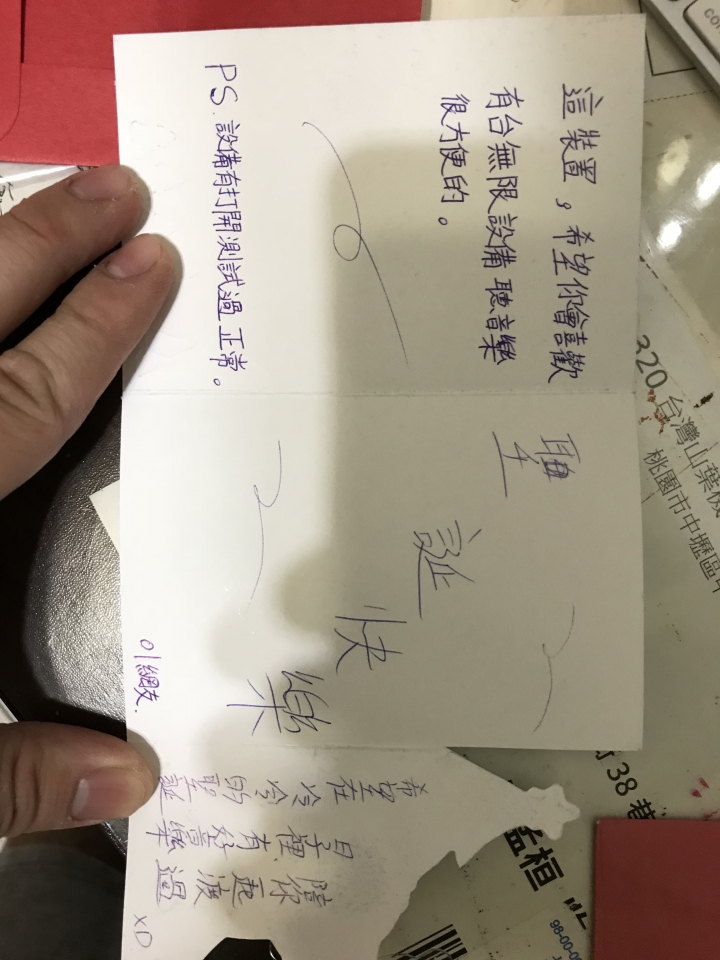 這裝置，希望你會喜歡
有台無限設備聽音樂
很方便的。
PS. 設備有打開測試過正常。
聖
誕
快
樂
01網友.
希望在冷冷的聖誕
日子裡有好音樂
陪你一起渡過
XD
320 台灣山葉機
桃園市中壢區
38 巷
孟桓
98-00-00